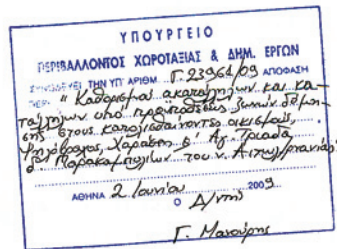 ΥΠΟΥΡΓΕΙΟ
ΠΕΡΙΒΑΛΛΟΝΤΟΣ ΧΩΡΟΤΑΞΙΑΣ & ΔΗΜ. ΕΡΓΩΝ
ΣΥΝΟΔΕΥΕΙ ΤΗΝ ΥΠ' ΑΡΙΘΜ Γ. 23964/09 ΑΠΟΦΑΣΗ
ΠΕΡΙ " Καθορισμού ακαταλλήλων και κα-
ταλλήλων υπό προϋποθέσεις ζωνών δόμη-
σης στους κατολισθαίνοντες οικισμούς
Ψηλόβραχος, Χαράσση Αγ. Τριάδα
Παρακαμπυλίων του ν. Αιτωλ/ρνανίας"
ΑΘΗΝΑ 2 Ιουνίου 2009
Ο Δ/ντης
Γ. Μανούρης